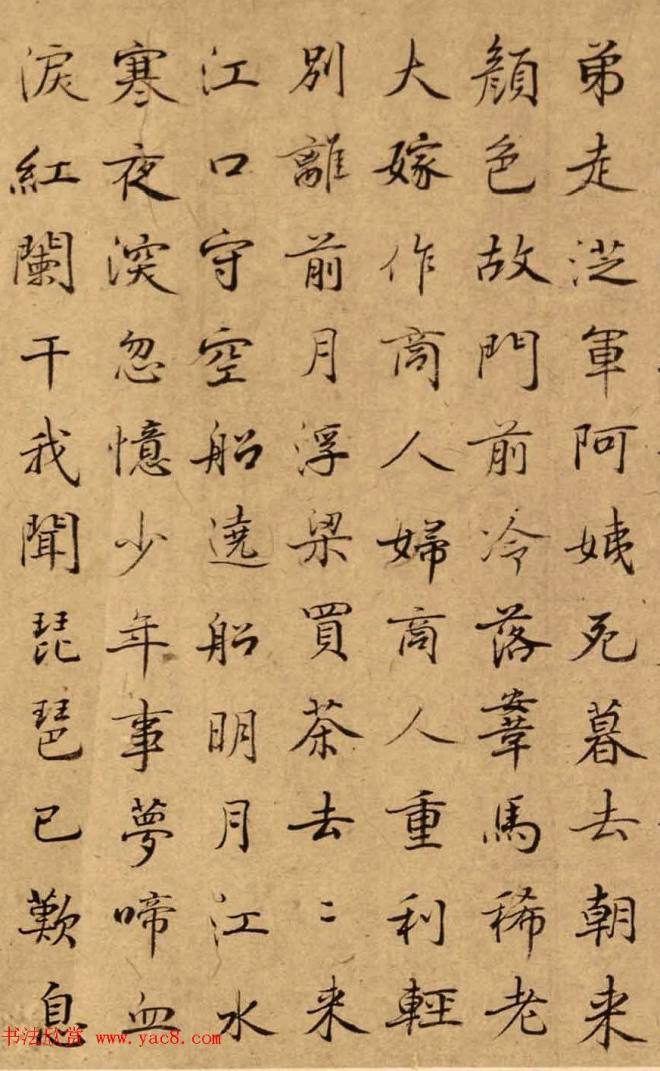 弟走從軍阿姨死暮去朝来
顏色故門前冷落鞌馬稀老
大嫁作商人婦商人重利輕
別離前月浮梁買茶去〻来
江口守空船遶船明月江水
寒夜深忽憶少年事夢啼血
淚紅闌干我聞琵琶已歎息
书法欣赏 www.yac8.com